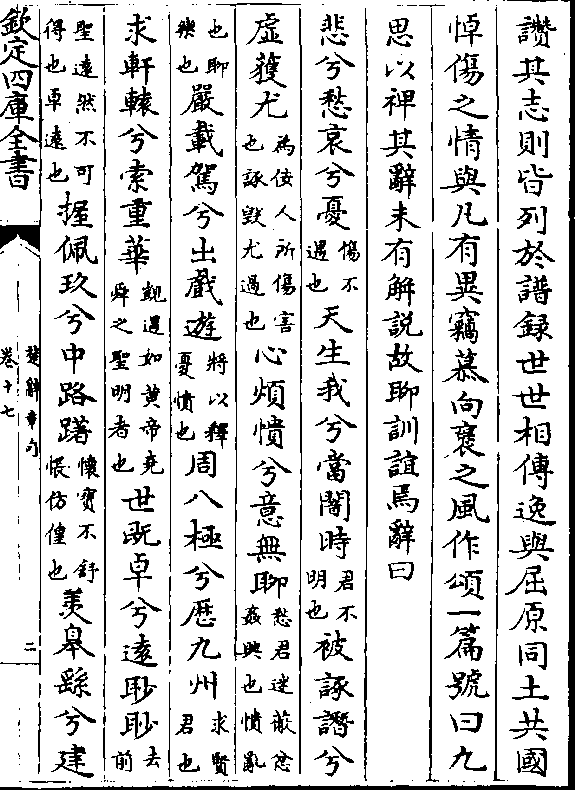 讚其志則皆列於譜録世世相傳逸與屈原同土共國
悼傷之情與凡有異竊慕向褒之風作頌一篇號曰九
思以裨其辭未有解説故聊訓誼焉辭曰
悲兮愁哀兮憂傷不遇也天生我兮當闇時君不明也被諑譖兮
虛獲尤為佞人所傷害也諑毁尤過也心煩憒兮意無聊愁君迷蔽忿姦興也憒亂
也聊樂也嚴載駕兮出戲遊將以釋憂憤也周八極兮歴九州求賢君也
求軒轅兮索重華覬遇如黄帝堯舜之聖明者也世既卓兮逺眇眇去前
聖遠然不可得也卓遠也握佩玖兮中路躇懷寶不舒悵仿偟也羨臯繇兮建
欽定四庫全書
楚辭章句
卷十七
二